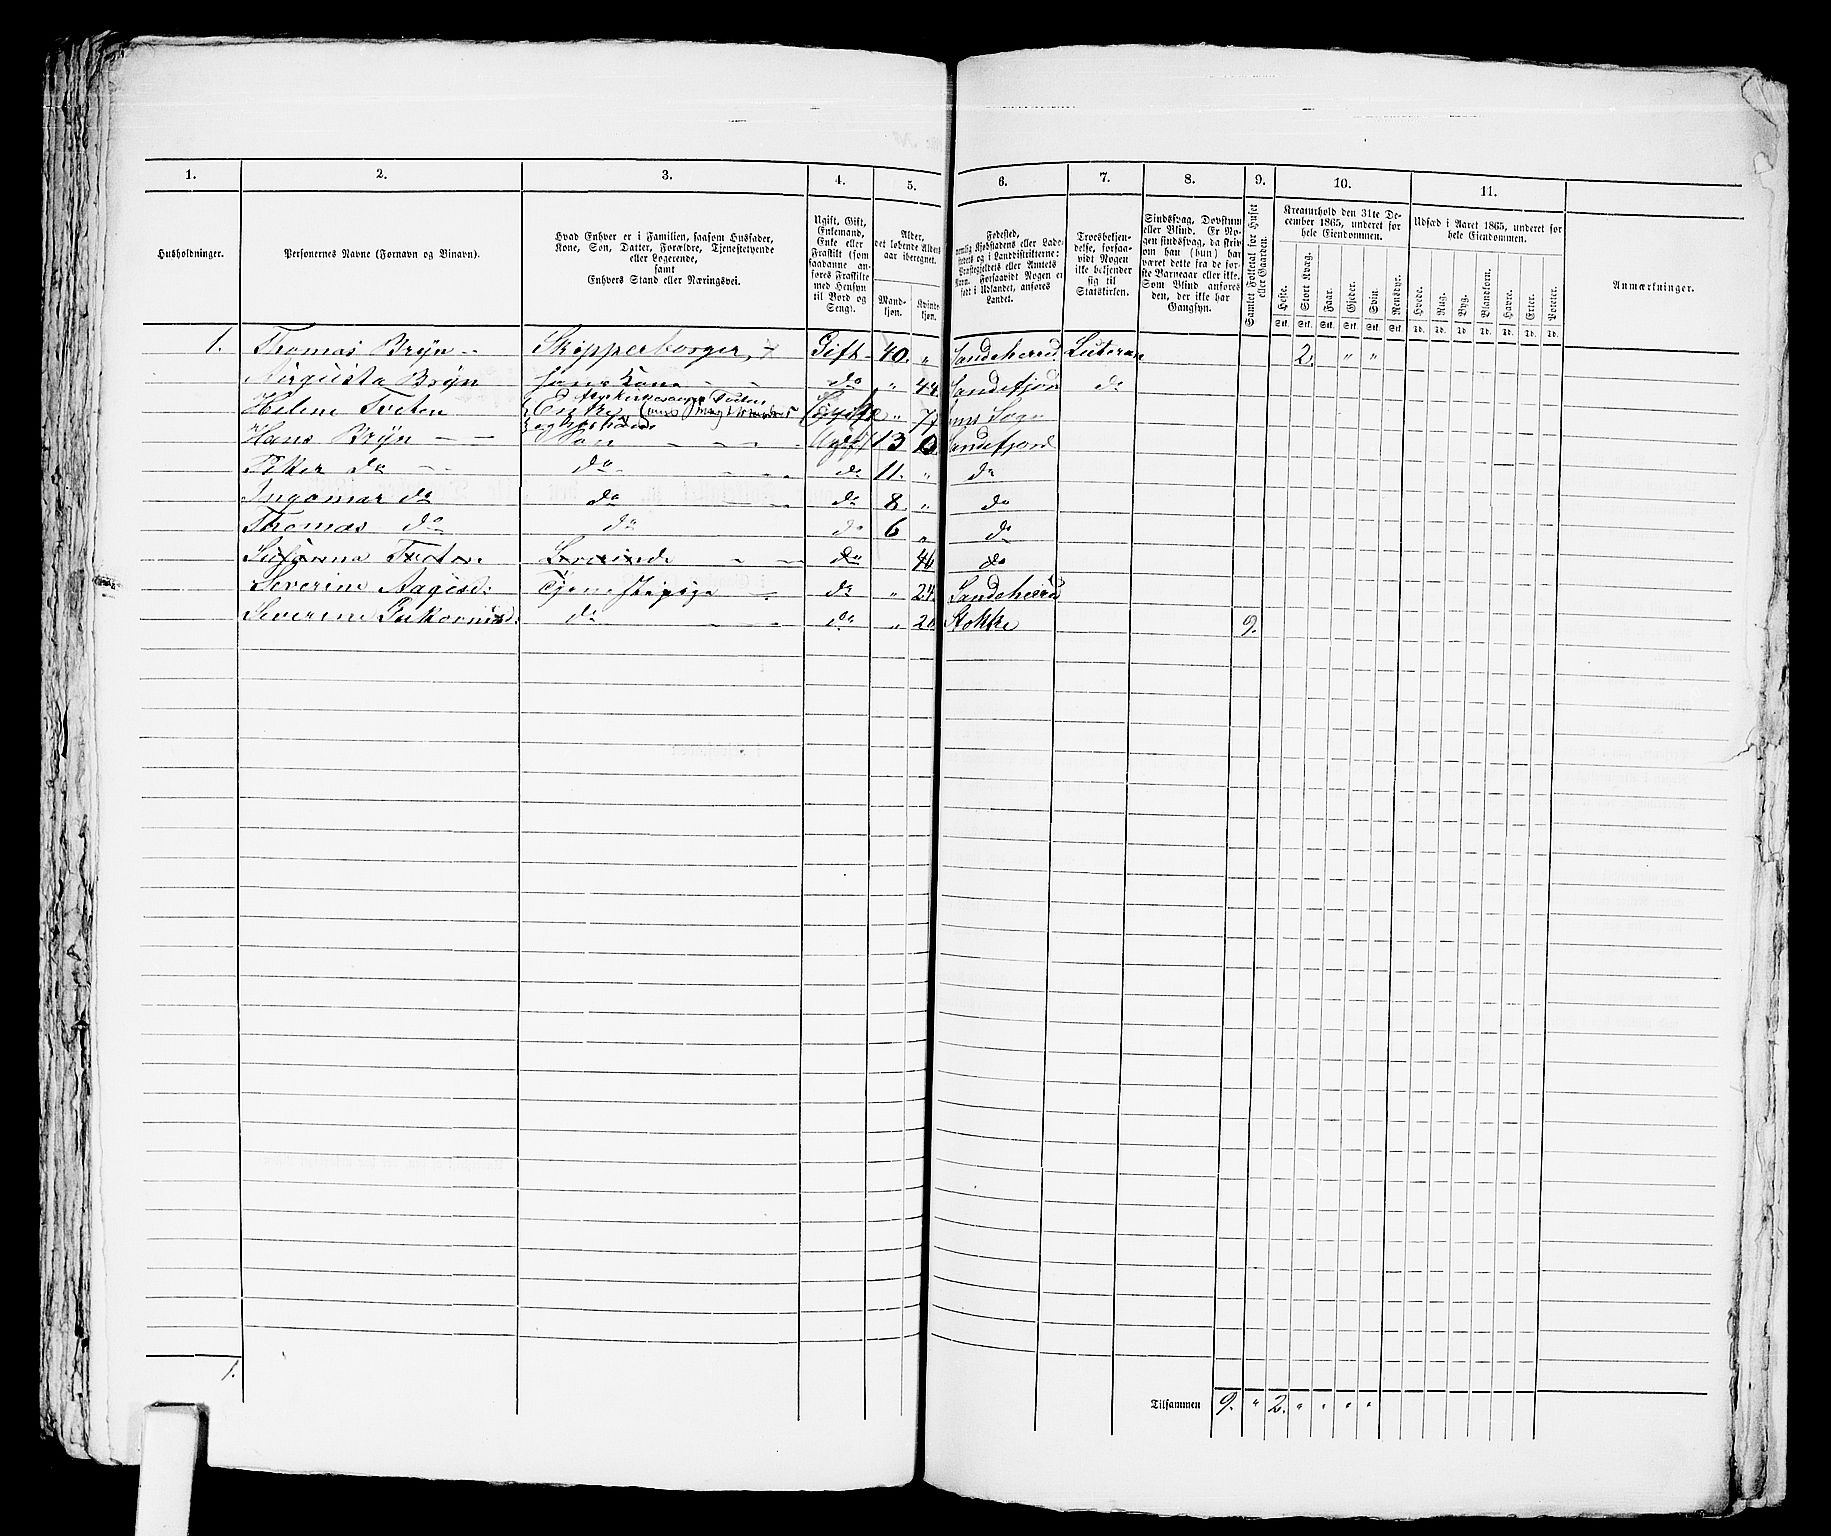 1. 2. 3. 4. 5. 6. 7. 8. 9. 10. 11.
Husholdninger.
Personernes Navne (Fornavn og Binavn).
Hvad Enhver er i Familien, saasom Husfader,
Kone, Søn, Datter, Forældre, Tjenestetyende
eller Logerende,
samt
Enhvers Stand eller Næringsvei.
Ugift, Gift,
Enkemand,
Enke eller
Fraskilt (som
saadanne an-
føres Fraskilte
med Hensyn
til Bord og
Seng).
Alder,
det løbende Alders-
aar iberegnet.
Mand-
kjøn.
Kvinde-
kjøn.
Fødested,
nemlig Kjøbstadens eller Lade-
stedets og i Landdistrikterne:
Præstegjeldets eller Amtets
Navn. Forsaavidt Nogen er
født i Udlandet, anføres
Landet.
Troesbekjen-
delse, forsaa-
vidt Nogen
ikke bekjender
sig til
Statskirken.
Sindssvag, Døvstum
eller Blind. Er No-
gen sindssvag, da skriv
om han (hun) har
været dette fra de før-
ste Barneaar eller ikke.
Som Blind anføres
den, der ikke har
Gangsyn.
Samlet Folketal for Huset
eller Gaarden.
Kreaturhold den 31te De-
cember 1865, underet for
hele Eiendommen.
Heste. Stort Kvæg. Faar. Gjeder. Svin. Rensdyr.
Stk. Stk. Stk. Stk. Stk. Stk.
Udsæd i Aaret 1865, underet for
hele Eiendommen.
Hvede. Rug. Byg. Blandkorn. Havre. Erter. Poteter.
Td. Td. Td. Td. Td. Td. Td.
Anmærkninger.
1. Thomas Bryn -- Skipperborger, Gift - 40. " Sandeherred Luteran 2. " "
Augusta Bryn hans Kone - - do " 44 Sandefjord do
Helene Tveten Enke Enke " 77
Hans Bryn - - Søn - - - Ugift 13 Sandefjord
Peter do - - do - - - do 11. " do
Ingomar do do - - do 8. " do
Thomas do do do 6 " do
Tveten - - do 46 do
Severine Aagesd: Tjenestepige - do " 24 Sandeherred
Severine do - - do " Stokke 9.
1.
Tilsammen 9. " 2. " " " "